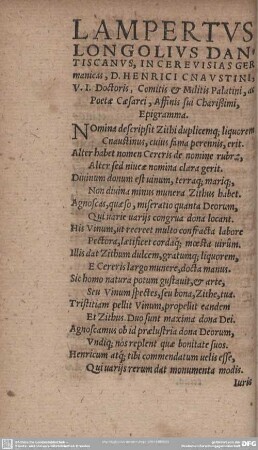 LAMPERTVS
LONGOLIVS DAN-
TISCANVS, IN CEREVISIAS GER
manicas, D. HENRICI CNAVSTINI,
V. I. Doctoris, Comitis & Militis Palatini, ac
Poetæ Cæsarei, Affinis sui Charißimi,
Epigramma.
NOmina descripsit Zithi duplicemq; liquorem
Cnaustinus, cuius fama perennis, erit.
Alter habet nomen Cereris de nomine rubræ,
Alter sed niueæ nomina clara gerit.
Diuinum donum est uinum, terraq; mariq;,
Non diuina minus munera Zithus habet.
Agnoscas, quæso, miseratio quanta Deorum,
Qui uarie uarijs congrua dona locant.
His Vinum, ut recreet multo confracta labore
Pectora, lætificet cordaq; mœsta uirûm.
Illis dat Zithum dulcem, gratumq; liquorem,
E Cereris largo munere, docta manus.
Sic homo natura potum gustauit, & arte,
Seu Vinum spectes, seu bona, Zithe, tua.
Tristitiam pellit Vinum, propellit eandem
Et Zithus. Duo sunt maxima dona Dei.
Agnoscamus ob id prælustria dona Deorum,
Vndiq; nos replent quæ bonitate suos.
Henricum atq; tibi commendatum uelis esse,
Qui uarijs rerum dat monumenta modis.
Iuris
DFG